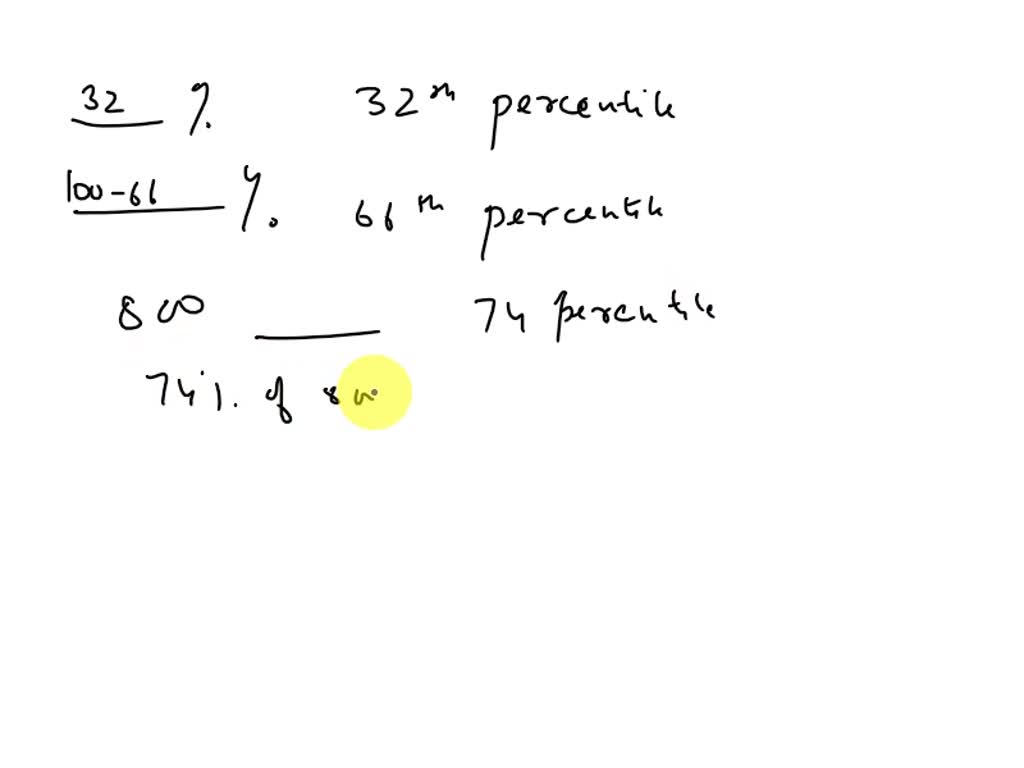 32 % 32th percentile
100-66 % 66th percentile
800 ____ 74 percentile
74% of 800